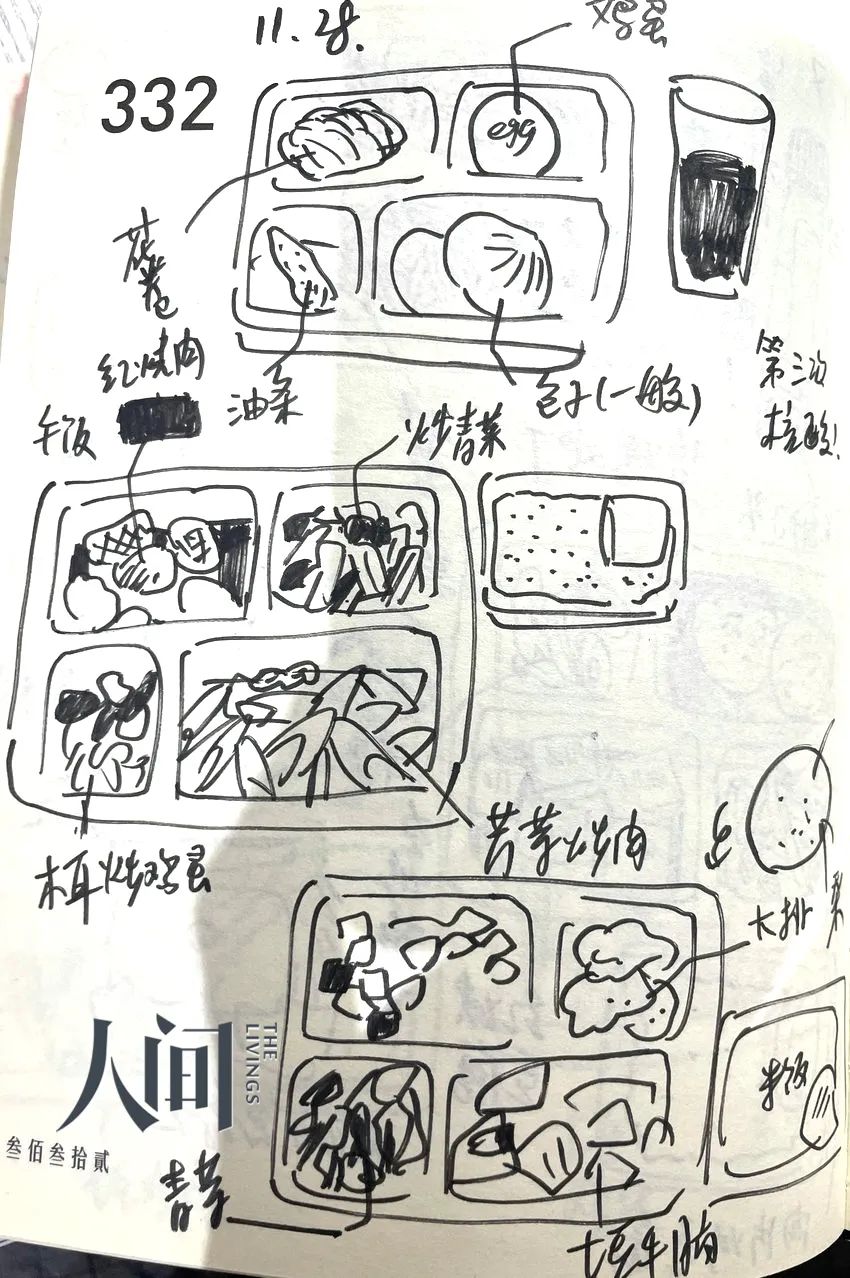 11.28.
鸡蛋
332
egg
花卷
红烧肉
油条
包子(一般)
第三次
核酸!
午饭
炒青菜
木耳炒鸡蛋
苦芋炒肉
大排
梨
米饭
人间
THE
LIVINGS
叁佰叁拾贰
青菜
土豆牛腩